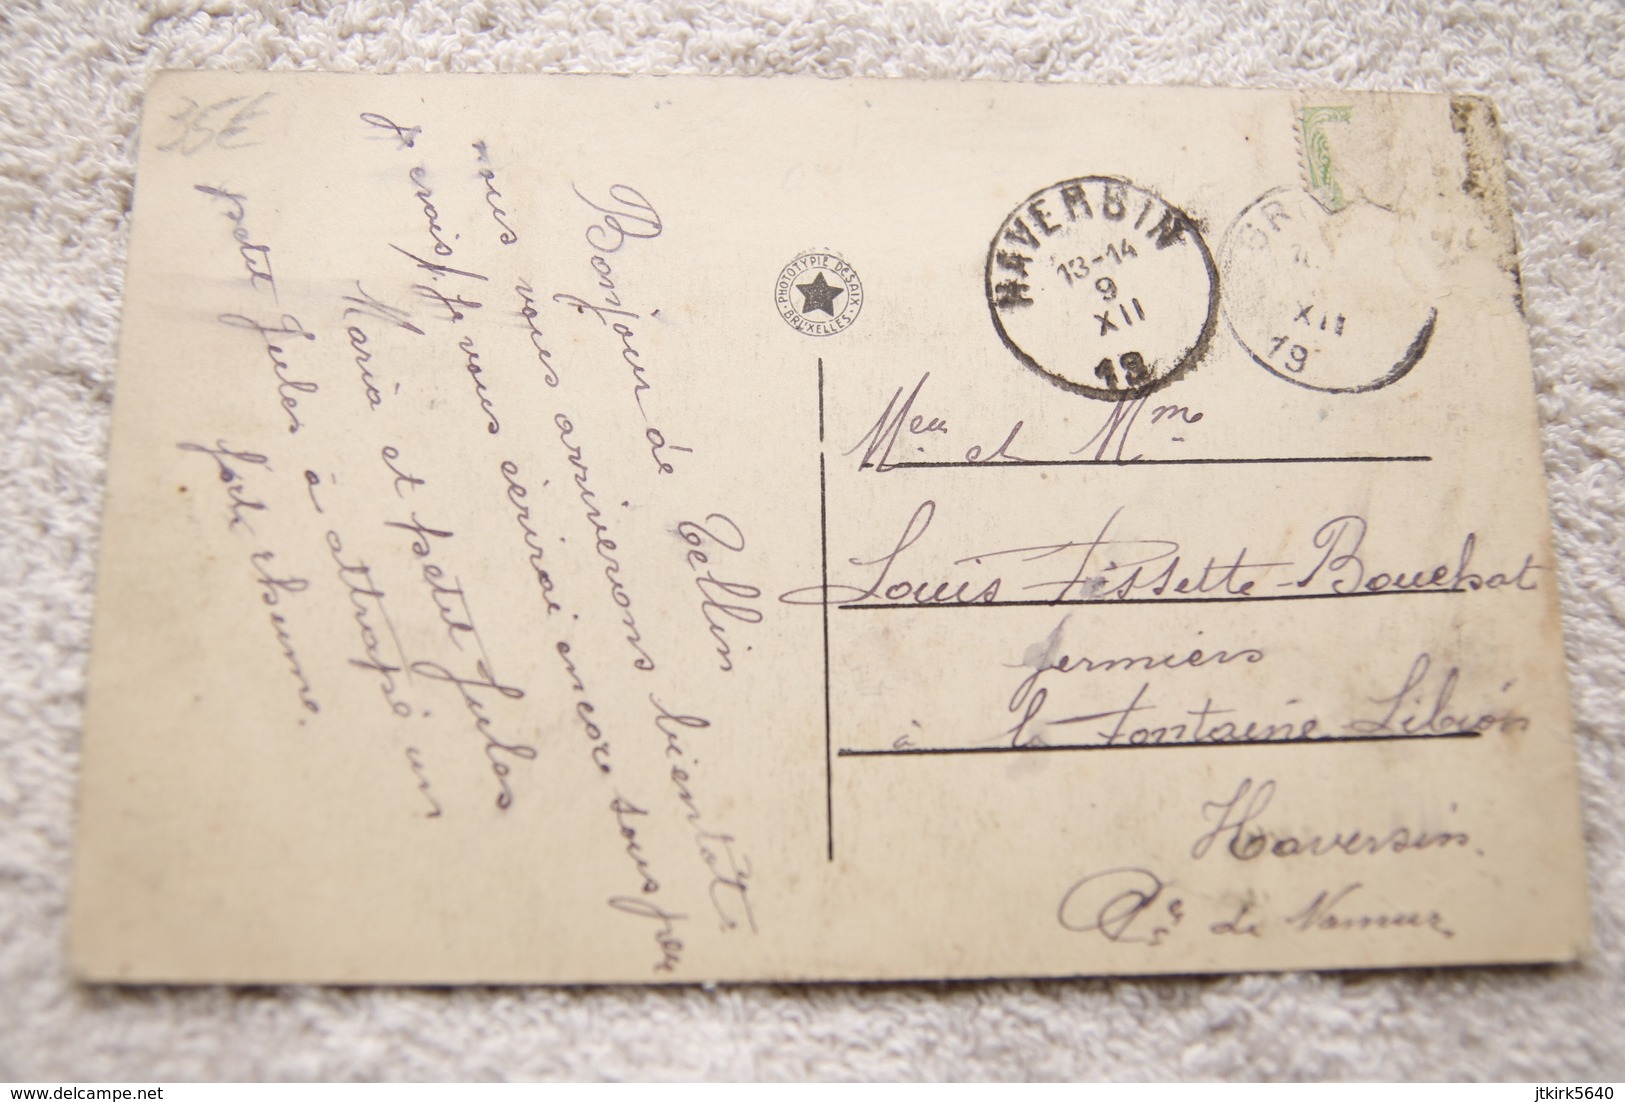 35€
Bonjour de Tellin
nous vous arriverons bientôt.
Je crois, je vous écrirai encore sous peu
Maria et petit Jules
petit Jules à attrapé un
fort rhume.
PHOTOTYPIE DÉSAIX
BRUXELLES
HAVERSIN
13-14
9
XII
13
GR
XII
19
Mr et Mme
Louis Fissette-Bouchat
fermiers
à la Fontaine
Haversin.
Pce de Namur
delcampe.net
jtkirk5640